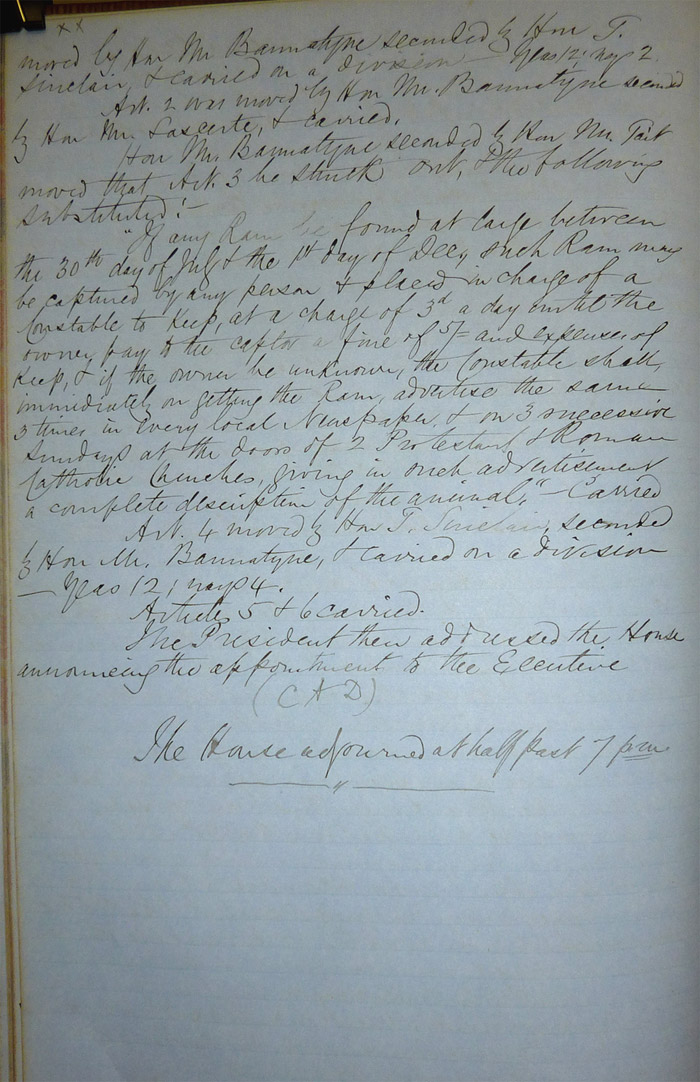 x x
moved by Hon Mr Bannatyne seconded by Hon T.
Sinclair, & carried on a division — Yeas 12; nays 2
Art. 2 was moved by Hon Mr. Bannatyne seconded
by Hon Mr. Lascerte, & carried.
Hon Mr. Bannatyne seconded by Hon Mr. Tait
moved that Art. 3 be struck out, & the following
substituted:—
"If any Ram be found at large between
the 30th day of July & the 1st day of Dec, such Ram may
be captured by any person & placed in charge of a
Constable to keep, at a charge of 3d a day until the
owner pay to the captor a fine of 5/= and expenses of
keep, & if the owner be unknown, the Constable shall,
immediately on getting the Ram, advertise the same
3 times in every local Newspaper, & on 3 successive
Sundays at the doors of 2 Protestant & Roman
Catholic Churches, giving in such advertisement
a complete description of the animal," — Carried
Art. 4 moved by Hon T. Sinclair, seconded
by Hon Mr. Bannatyne, & carried on a division
— Yeas 12; nays 4.
Articles 5 & 6 carried.
The President then addressed the House
announcing the appointment to the Executive
(C A D)
The House adjourned at half past 7 p.m.